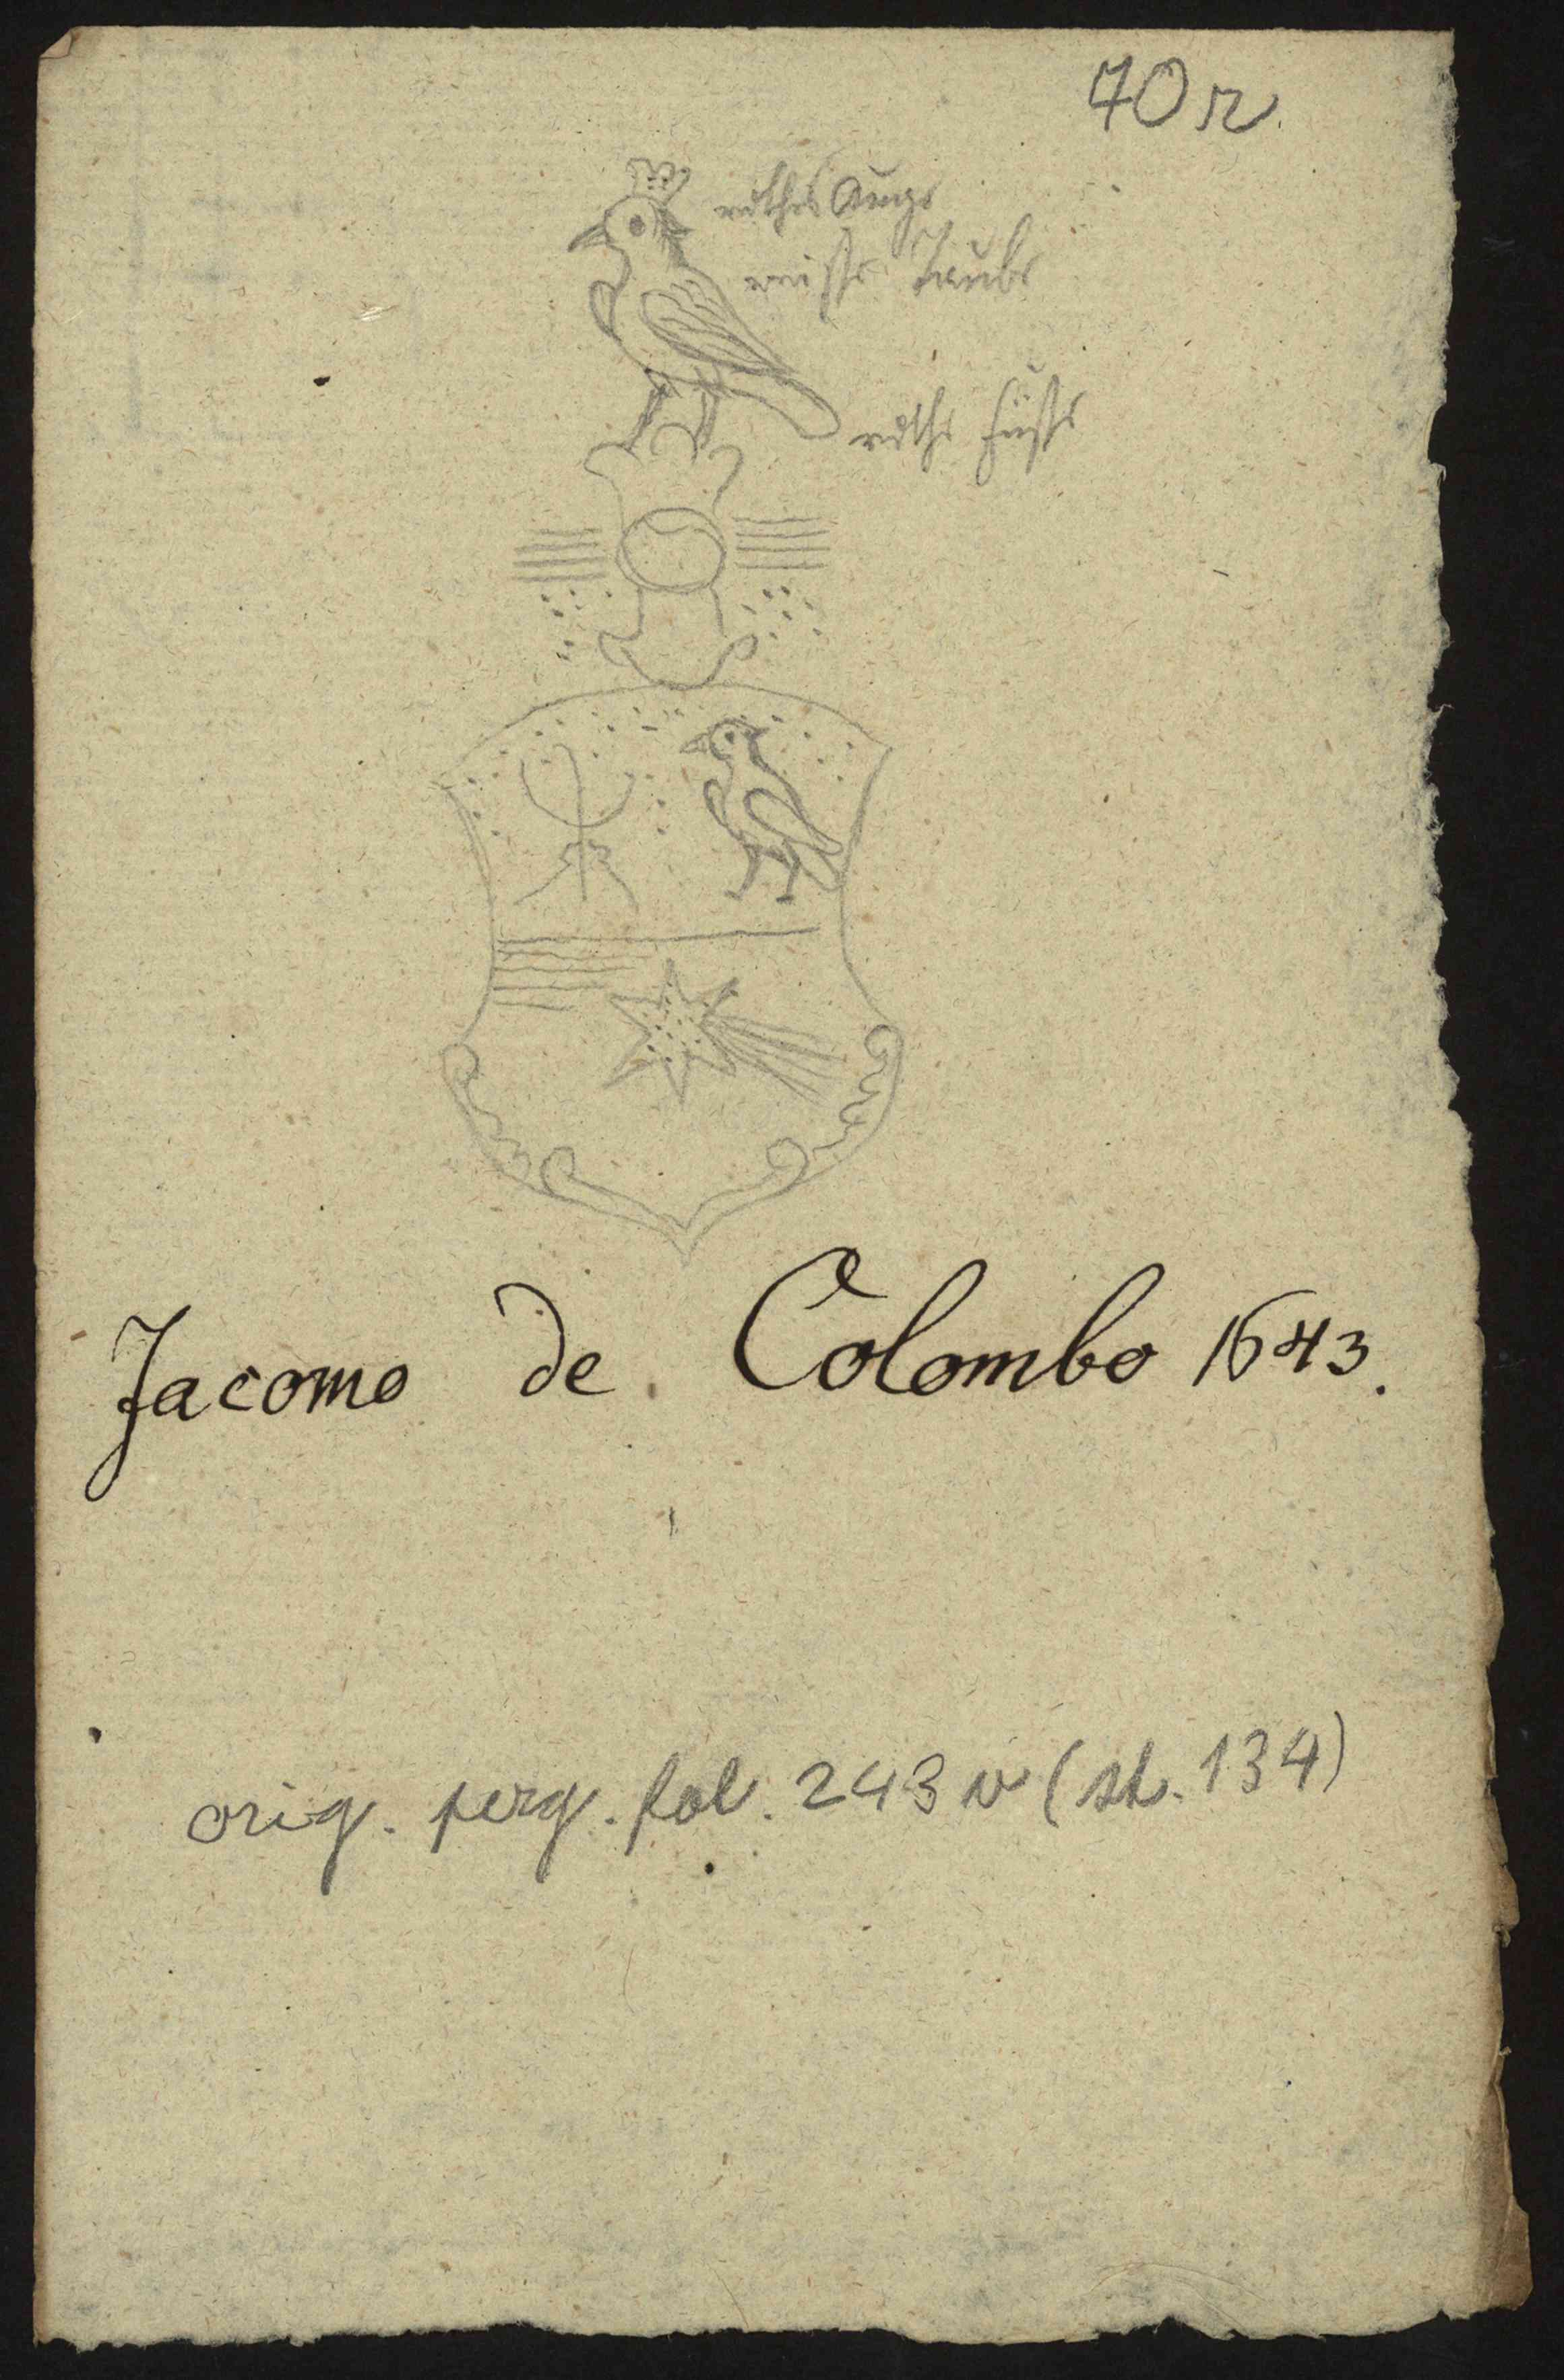 70r
rothes Auge
weisse Taube
rothe Füsse
Jacomo de Colombo 1643.
orig. perg. fol. 243 v (st. 134)